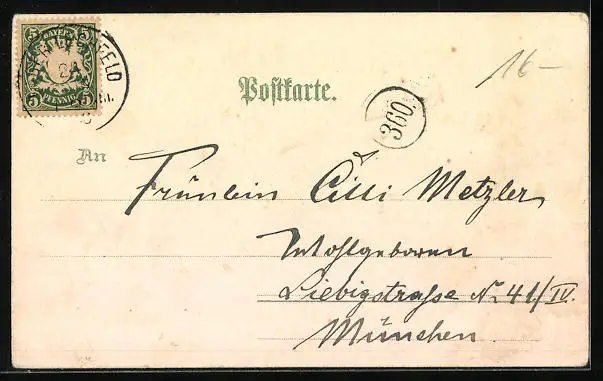 BAYERN
5 5
5 5
PFENNIG
FELD
16-
Postkarte.
360.
An
Fräulein Cilli Metzler
Wohlgeboren
Liebigstraße No 41/IV.
München